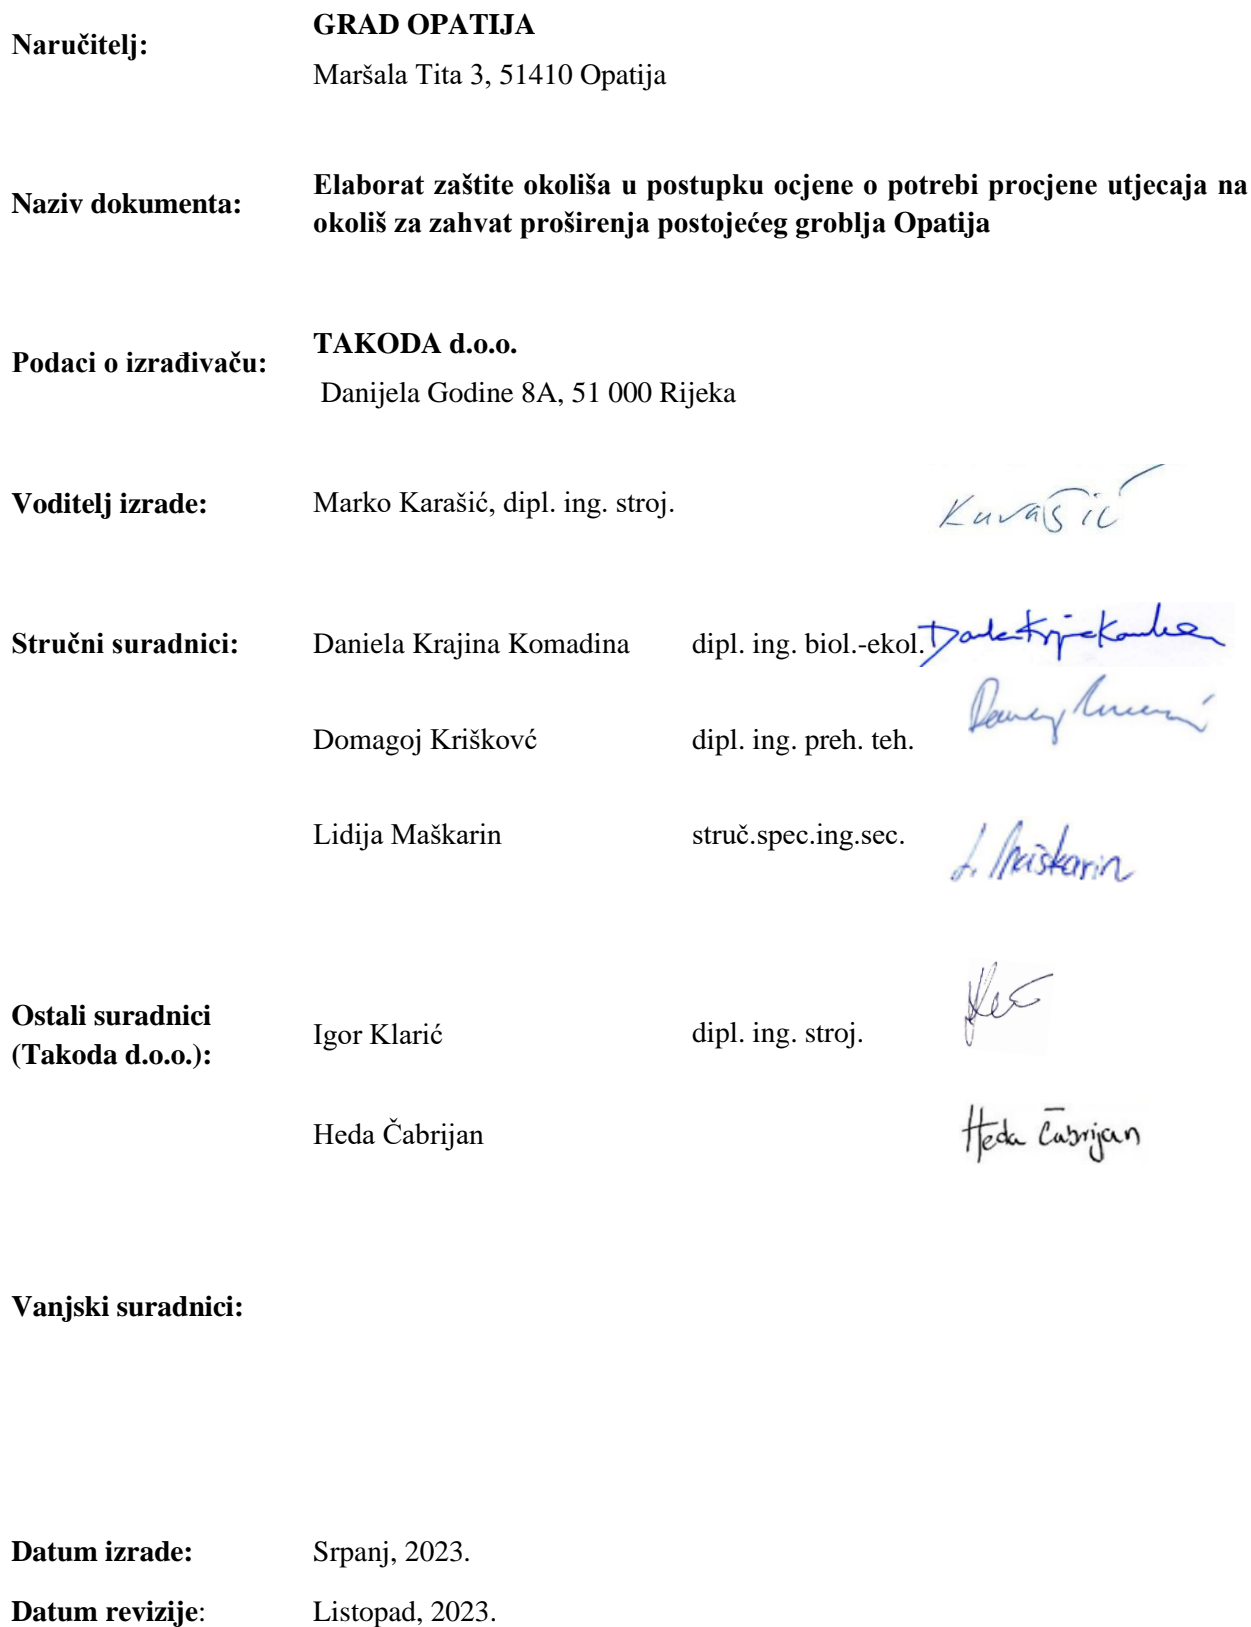 Naručitelj:
GRAD OPATIJA
Maršala Tita 3, 51410 Opatija
Naziv dokumenta:
Elaborat zaštite okoliša u postupku ocjene o potrebi procjene utjecaja na
okoliš za zahvat proširenja postojećeg groblja Opatija
Podaci o izrađivaču:
TAKODA d.o.o.
Danijela Godine 8A, 51 000 Rijeka
Voditelj izrade: Marko Karašić, dipl. ing. stroj. Karašić
Stručni suradnici: Daniela Krajina Komadina dipl. ing. biol.-ekol.
Domagoj Kriškovć dipl. ing. preh. teh.
Lidija Maškarin struč.spec.ing.sec. L. Maškarin
Ostali suradnici
(Takoda d.o.o.):
Igor Klarić dipl. ing. stroj.
Heda Čabrijan Heda Čabrijan
Vanjski suradnici:
Datum izrade: Srpanj, 2023.
Datum revizije: Listopad, 2023.